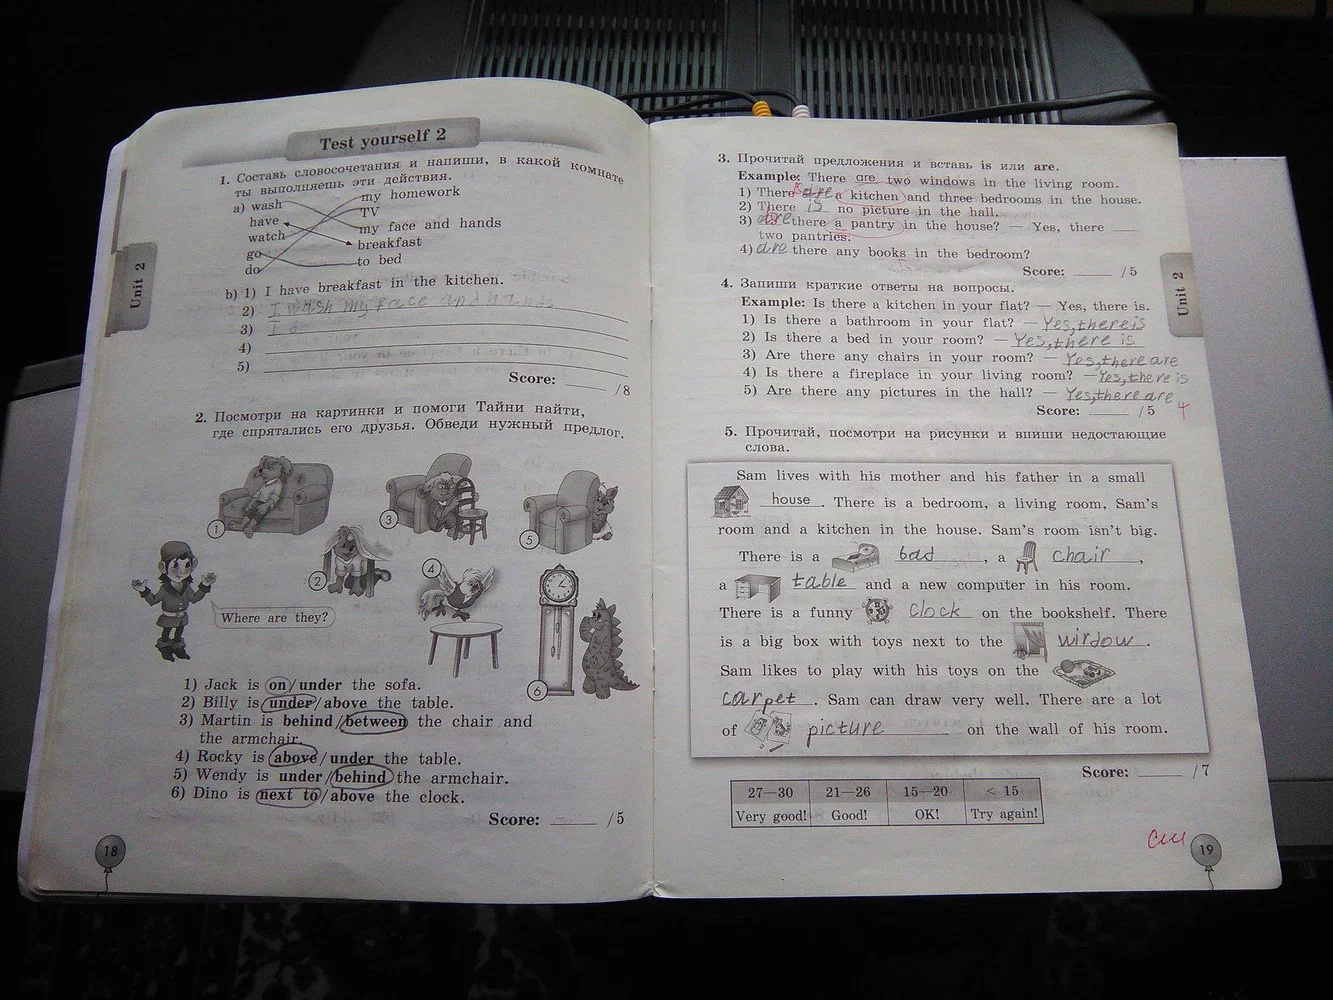 Test yourself 2
1. Составь словосочетания и напиши, в какой комнате
ты выполняешь эти действия.
a) wash
my homework
have
TV
watch
my face and hands
go
breakfast
do
to bed
b) 1) I have breakfast in the kitchen.
2) I wash my face and hands
3) I
4)
5)
Score: /8
2. Посмотри на картинки и помоги Тайни найти,
где спрятались его друзья. Обведи нужный предлог.
1
2
3
4
5
6
Where are they?
1) Jack is on/under the sofa.
2) Billy is under/above the table.
3) Martin is behind/between the chair and
the armchair.
4) Rocky is above/under the table.
5) Wendy is under/behind the armchair.
6) Dino is next to/above the clock.
Score: /5
Unit 2
18
3. Прочитай предложения и вставь is или are.
Example: There are two windows in the living room.
1) There are a kitchen and three bedrooms in the house.
2) There is no picture in the hall.
3) are there a pantry in the house? — Yes, there
two pantries.
4) are there any books in the bedroom?
Score: /5
4. Запиши краткие ответы на вопросы.
Example: Is there a kitchen in your flat? — Yes, there is.
1) Is there a bathroom in your flat? — Yes, there is
2) Is there a bed in your room? — Yes, there is
3) Are there any chairs in your room? — Yes, there are
4) Is there a fireplace in your living room? — Yes, there is
5) Are there any pictures in the hall? — Yes, there are
Score: /5 4
5. Прочитай, посмотри на рисунки и впиши недостающие
слова.
Sam lives with his mother and his father in a small
house. There is a bedroom, a living room, Sam's
room and a kitchen in the house. Sam's room isn't big.
There is a bad, a chair,
a table and a new computer in his room.
There is a funny clock on the bookshelf. There
is a big box with toys next to the wirdow.
Sam likes to play with his toys on the
carpet. Sam can draw very well. There are a lot
of picture on the wall of his room.
Score: /7
27—30 21—26 15—20 < 15
Very good! Good! OK! Try again!
Unit 2
19